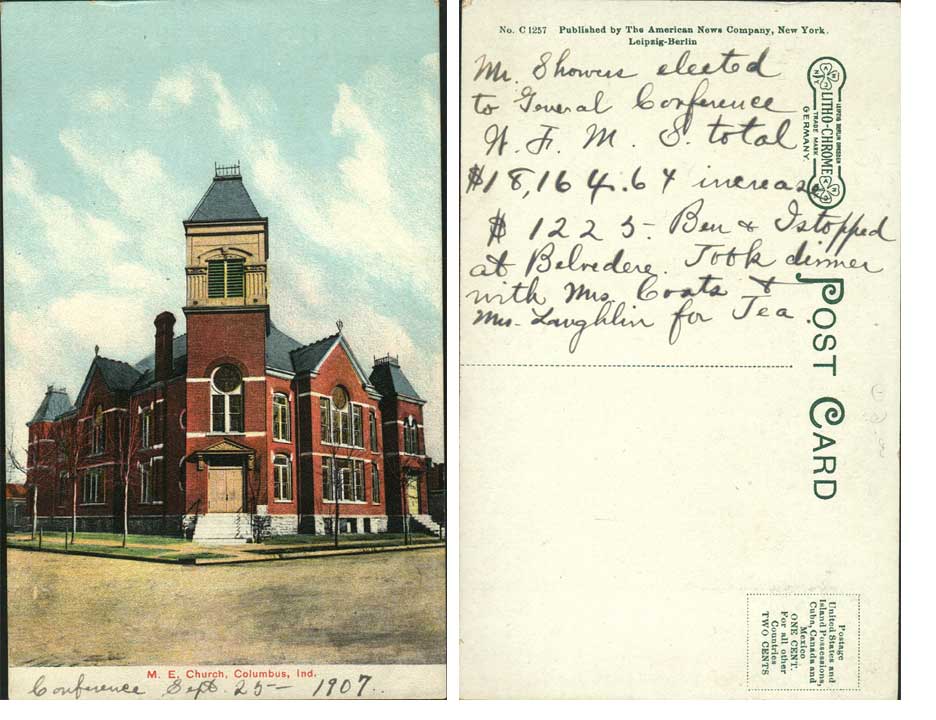 M. E. Church, Columbus, Ind.
Conference Sept. 25 — 1907.
No. C 1257 Published by The American News Company, New York.
Leipzig-Berlin
Mr. Showers elected
to General Conference
W. F. M. S. total
$18,164.64 increase
$ 1225 - Ben & I stopped
at Belvedere. Took dinner
with Mrs. Coats &
Mrs. Laughlin for Tea.
POST CARD
LITHO-CHROME
TRADE MARK
GERMANY.
LEIPZIG BERLIN DRESDEN
Postage
United States and
Island Possessions,
Cuba, Canada and
Mexico
ONE CENT.
For all other
Countries
TWO CENTS